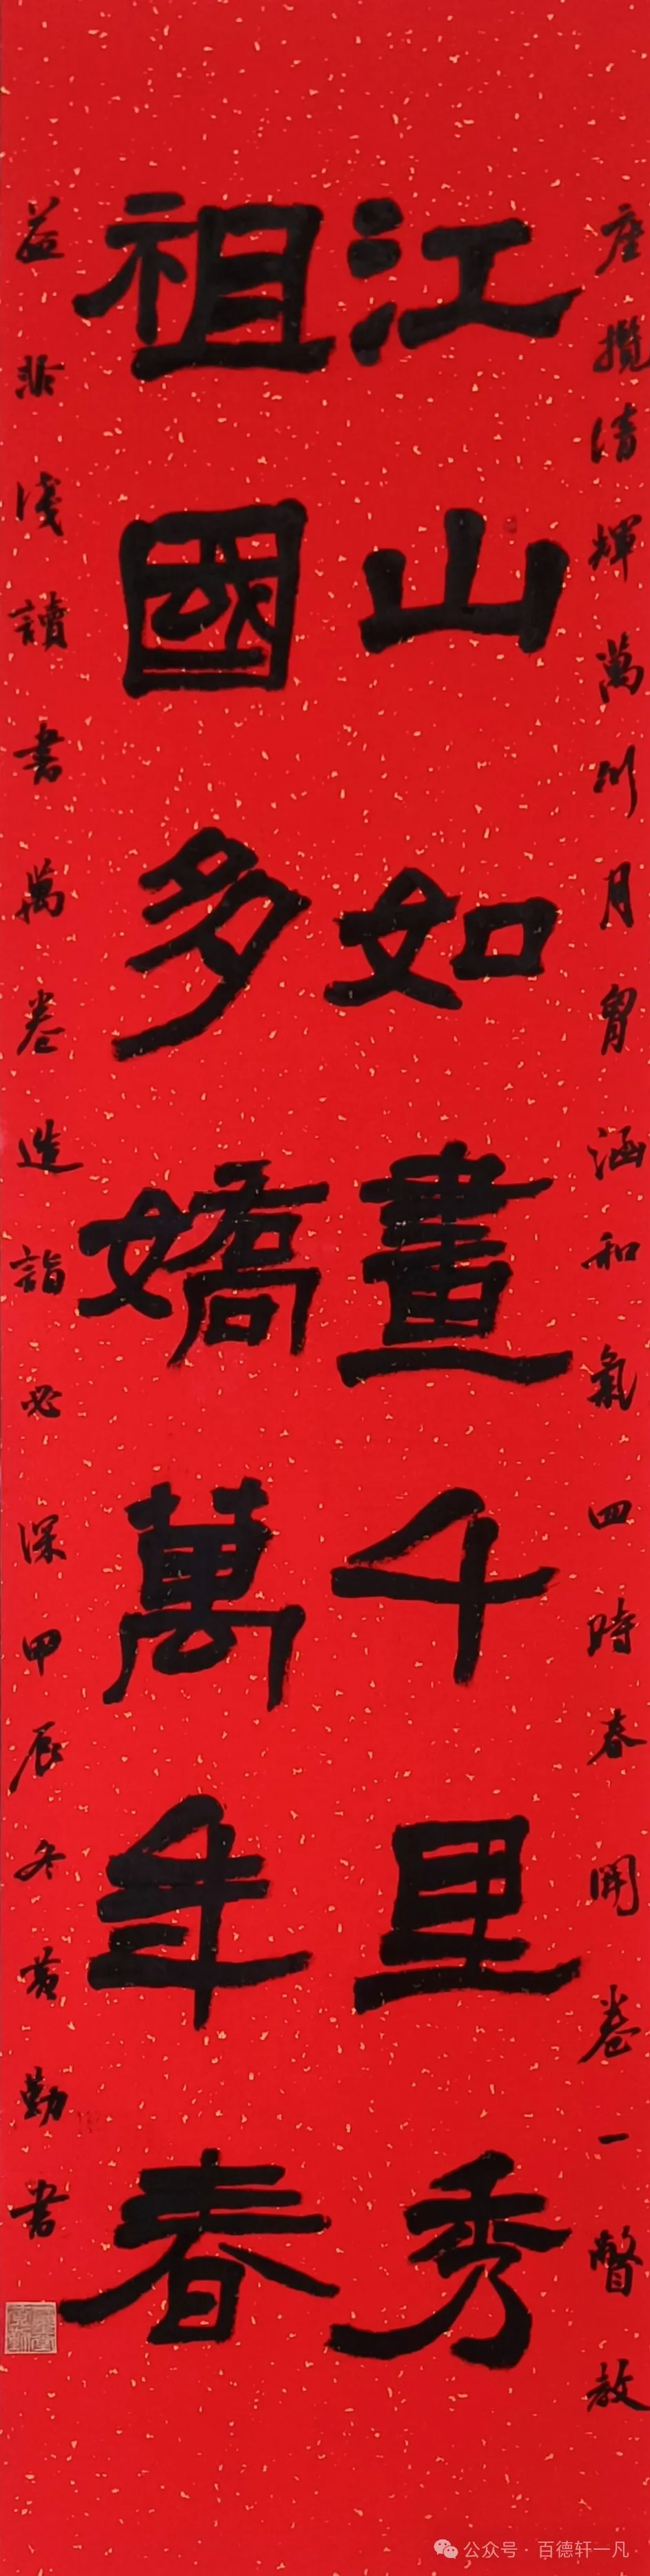 座攬清輝萬川月胷涵和氣四時春開卷一瞥啟
江山如畫千里秀
祖國多嬌萬年春
益非淺讀書萬卷造詣必深甲辰冬黃勤書
公众号·百德轩一凡